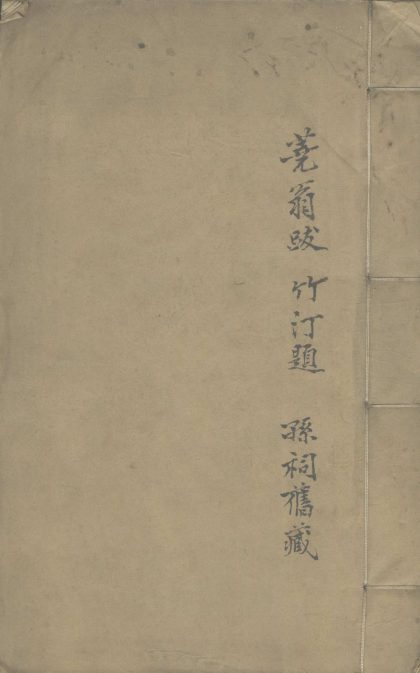 蕘翁跋 竹汀題 孫祠舊藏